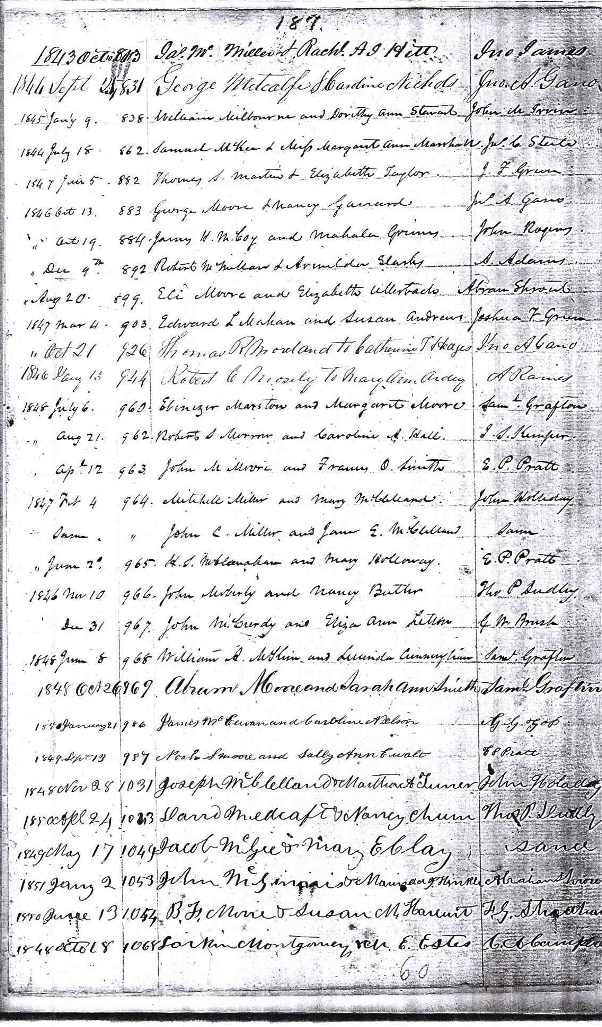 187.
1843 Octo 813 Jas. Mc. Miller & Rachl. A. I. Hitt Jno James
1844 Sept 25 831 George Metcalfe & Nichols Jno. A. Gano
1845 Jany 9. 838. William Milbourne and Dorothy Ann Stewart John M
1844 July 18 862. Samuel McKee & Miss Margaret Ann Marshall Js. C Steele
1847 Jan 5. 882 Thomas S. Martin & Elizabeth Taylor. J. F Green
1846 Oct 13. 883 George Moore & Nancy Garrard Jn. A. Gano
" Oct 19. 884. James H. McCoy and Mahala Grimes John Rogers
" Dec 9th 892 Robert McMillan & Armilda A. Adams
" Aug 20. 899. Eli Moore and Elizabeth Utterback Abram Shrout
1847 Mar 4. 903. Edward L Mahan and Susan Andrews Joshua F Green
" Oct 21 926 Thomas R. Moreland to Catherine T Jno A Gano
1846 Jany 13 944 Robert C Mosely to Mary Ann Ardery A Raines
1848 July 6. 960. Ebenezer Marston and Margaret Moore Saml. Grafton
" Aug 21. 962. Robert S Morrow and Caroline A. Hall. J. S. Kemper
" Apl. 12 963. John M. Moore and Frances O. Smith E. P. Pratt
1847 Feb 4 964. Mitchell Miller and Mary McClelland. John Holladay
" Same " John C. Miller and Jane E. McClelland Same
" June 2d. 965. H. S. McClanahan and Mary Holloway. E. P. Pratt
1846 Nov 10 966. John Moberly and Nancy Butler Tho P. Dudley
Dec 31 967. John McCurdy and Eliza Ann Letton C. W. Brush
1848 June 8 968 William A. and Lucinda Cunningham Saml. Grafton
1848 Oct 26 969 Abram Moore and Sarah Ann Smith Saml. Grafton
January 21 986 James McCowan and Caroline Nelson
1849 Sept 13 987 S Moore and Sally Ann Ewalt
1848 Nov 28 1031 Joseph McClelland & Martha A. Turner John Holaday
1850 Apl 24 1033 David Medcalf & Nancy Thos P. Dudley
1849 May 17 1049 Jacob McGee & Mary E Clay, Same
1851 Jany 2 1053 John McGinnis & Hinkle Abraham
1850 June 13 1054 B. F. Moore & Susan M. F. G.
1848 Octo 18 1068 Larkin Montgomery & M. E. Estes
60